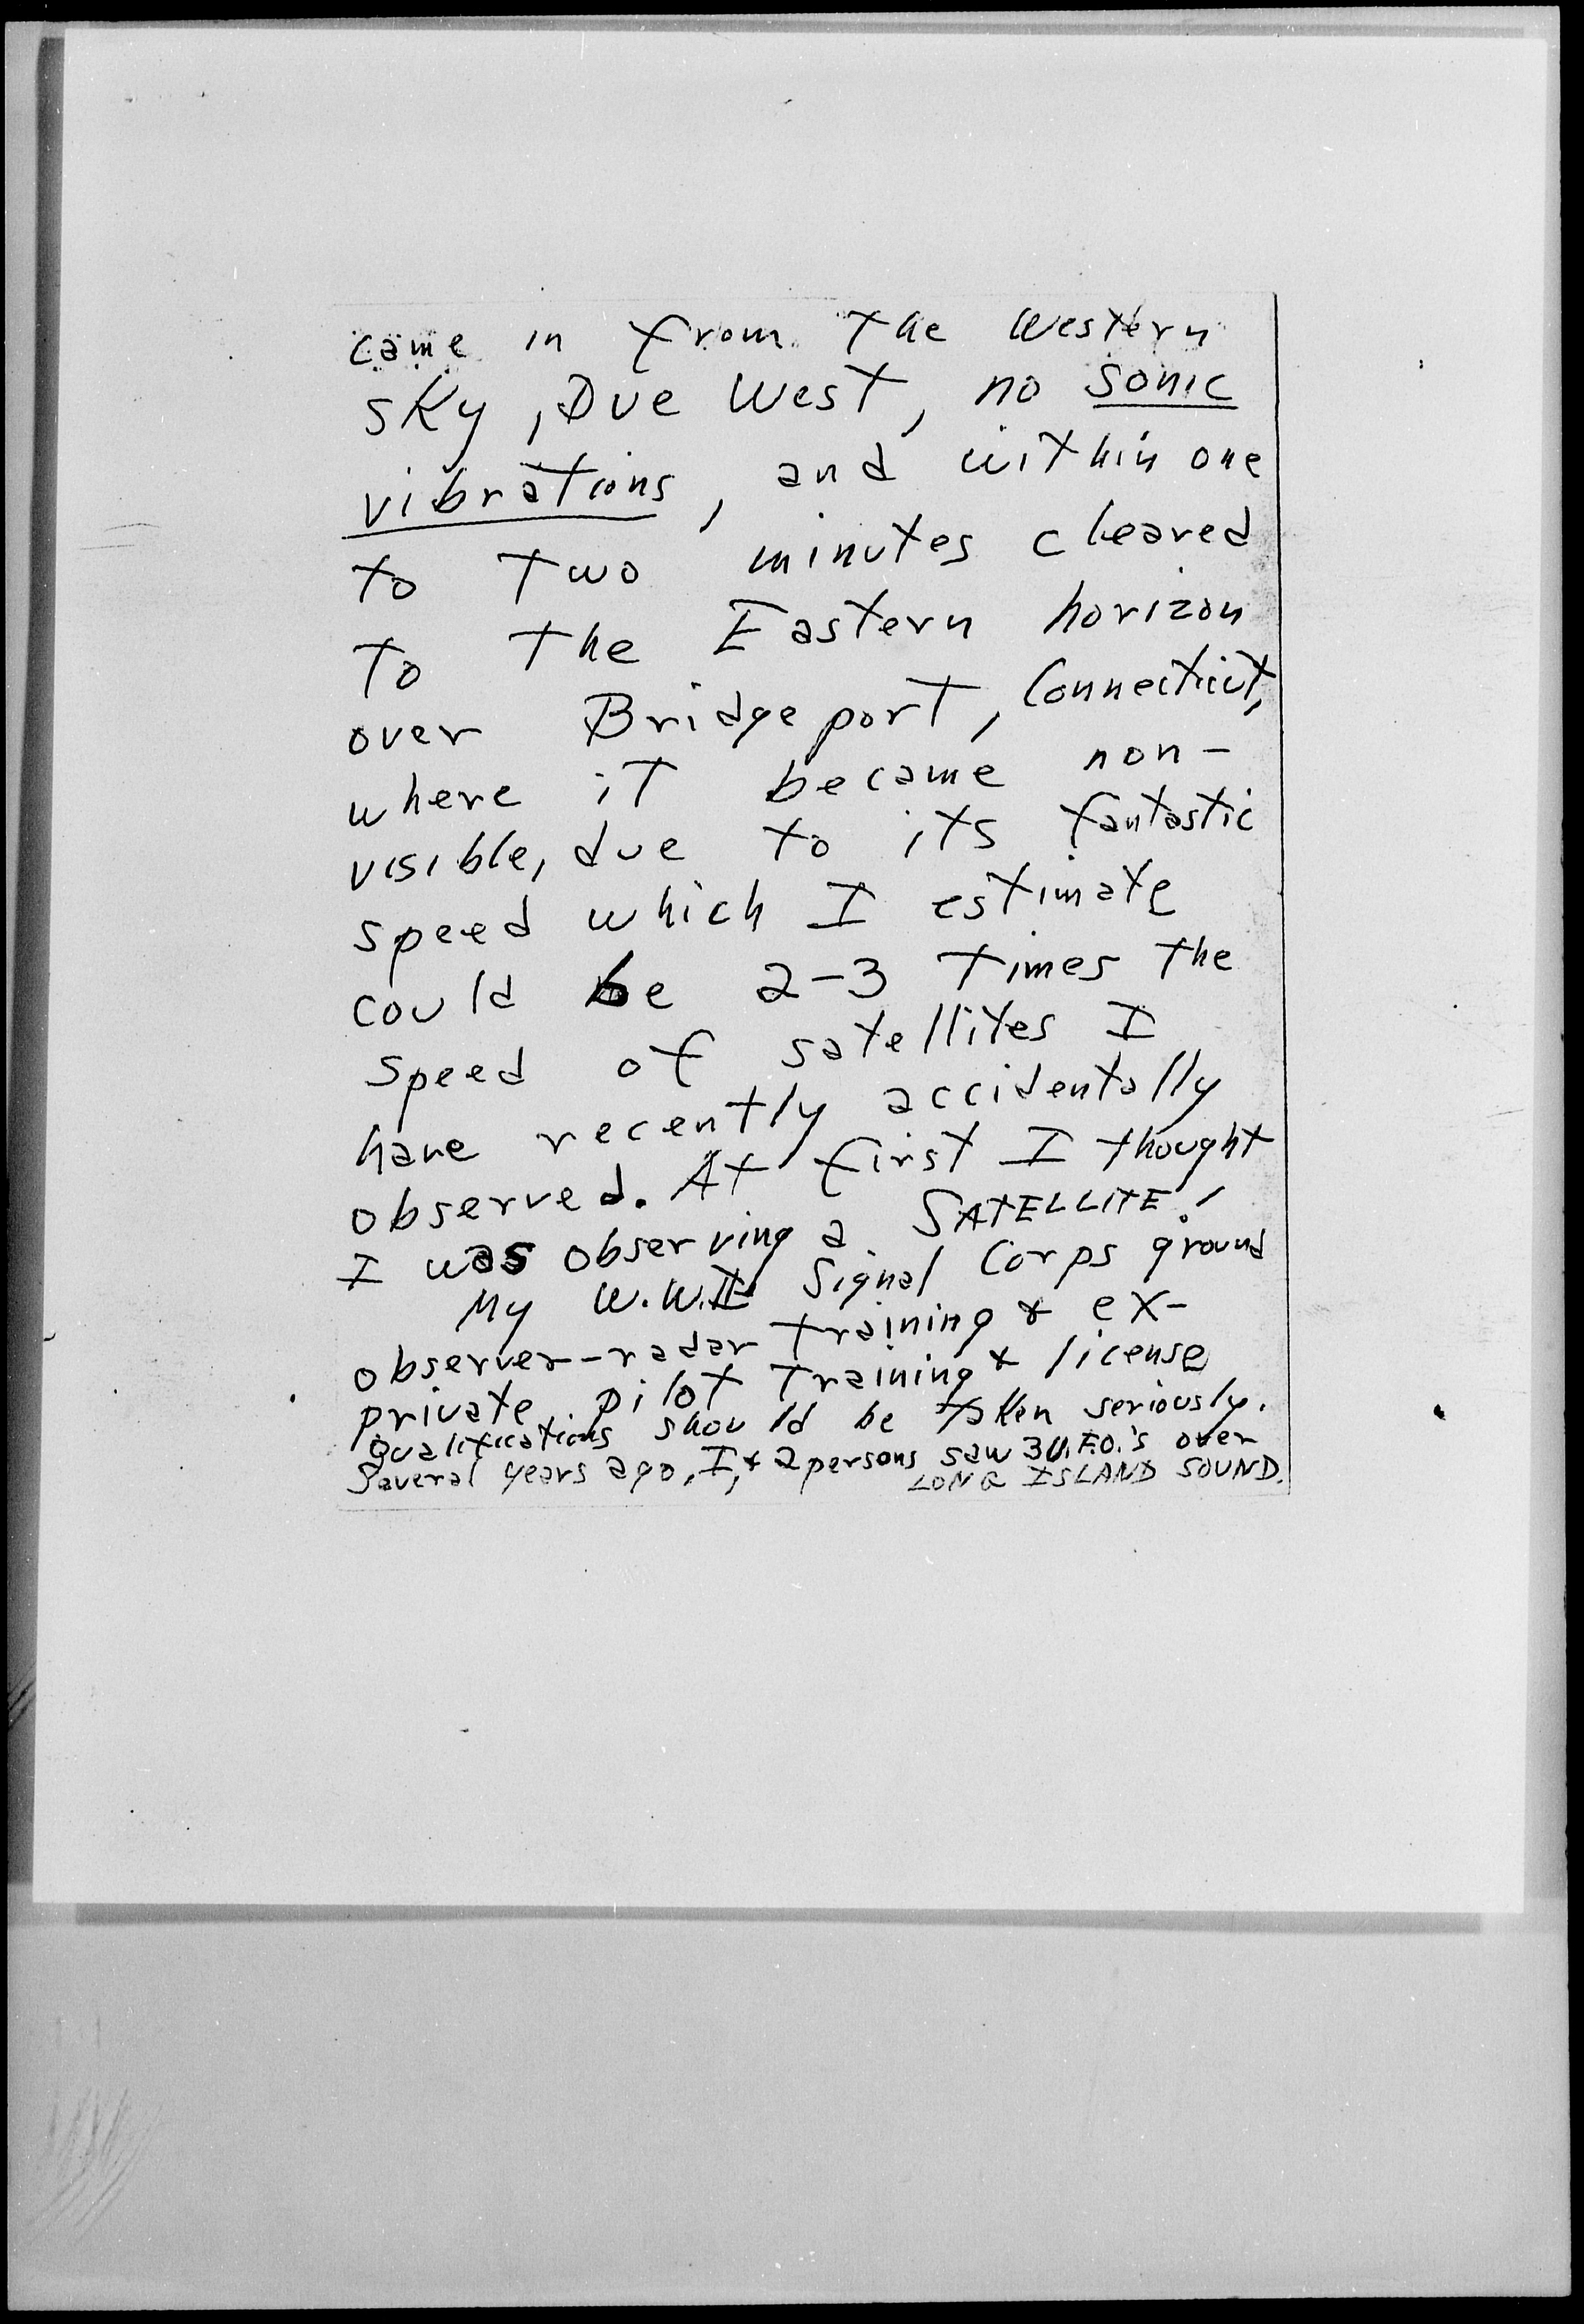 came in from the Western
sky, Due West, no sonic
vibrations, and within one
to two minutes cleared
to the Eastern horizon
over Bridgeport, Connecticut,
where it became non-
visible, due to its fantastic
speed which I estimate
could be 2-3 times the
speed of satellites I
have recently accidentally
observed. At first I thought
I was observing a SATELLITE!
My W.W.II Signal Corps ground
observer-radar training & ex-
private pilot training & license
qualifications should be taken seriously.
Several years ago, I, & 2 persons saw 3 U.F.O.'s over
LONG ISLAND SOUND.